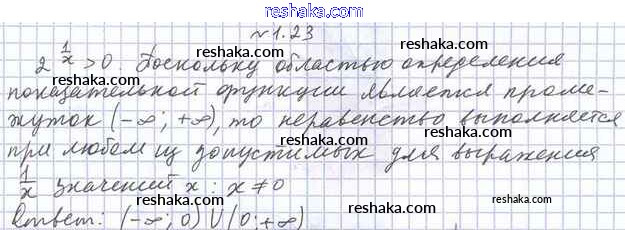 reshaka.com
№1.23
2^(1/x) > 0. Поскольку областью определения
показательной функции является проме-
жуток (-∞; +∞), то неравенство выполняется
при любом из допустимых для выражения
1/x значений x: x ≠ 0
Ответ: (-∞; 0) U (0; +∞)
reshaka.com
reshaka.com
reshaka.com
reshaka.com
reshaka.com
reshaka.com
reshaka.com
reshaka.com
reshaka.com
reshaka.com